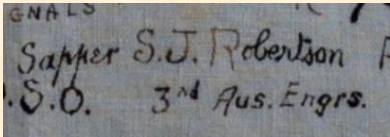 GNALS
Sapper S.J. Robertson
.S.O. 3rd Aus. Engrs.